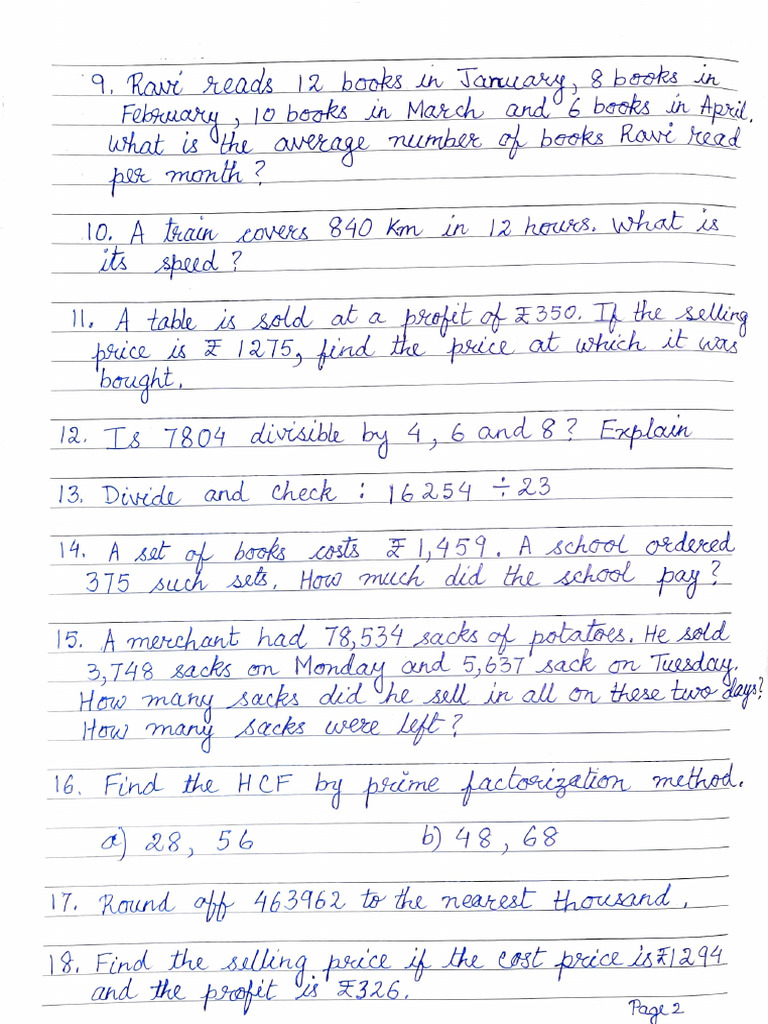 9. Ravi reads 12 books in January, 8 books in
February, 10 books in March and 6 books in April.
What is the average number of books Ravi read
per month?
10. A train covers 840 km in 12 hours. What is
its speed?
11. A table is sold at a profit of ₹350. If the selling
price is ₹ 1275, find the price at which it was
bought.
12. Is 7804 divisible by 4, 6 and 8? Explain
13. Divide and check : 16254 ÷ 23
14. A set of books costs ₹1,459. A school ordered
375 such sets. How much did the school pay?
15. A merchant had 78,534 sacks of potatoes. He sold
3,748 sacks on Monday and 5,637 sack on Tuesday.
How many sacks did he sell in all on these two days?
How many sacks were left?
16. Find the HCF by prime factorization method.
a) 28, 56 b) 48, 68
17. Round off 463962 to the nearest thousand.
18. Find the selling price if the cost price is ₹1294
and the profit is ₹326.
Page 2